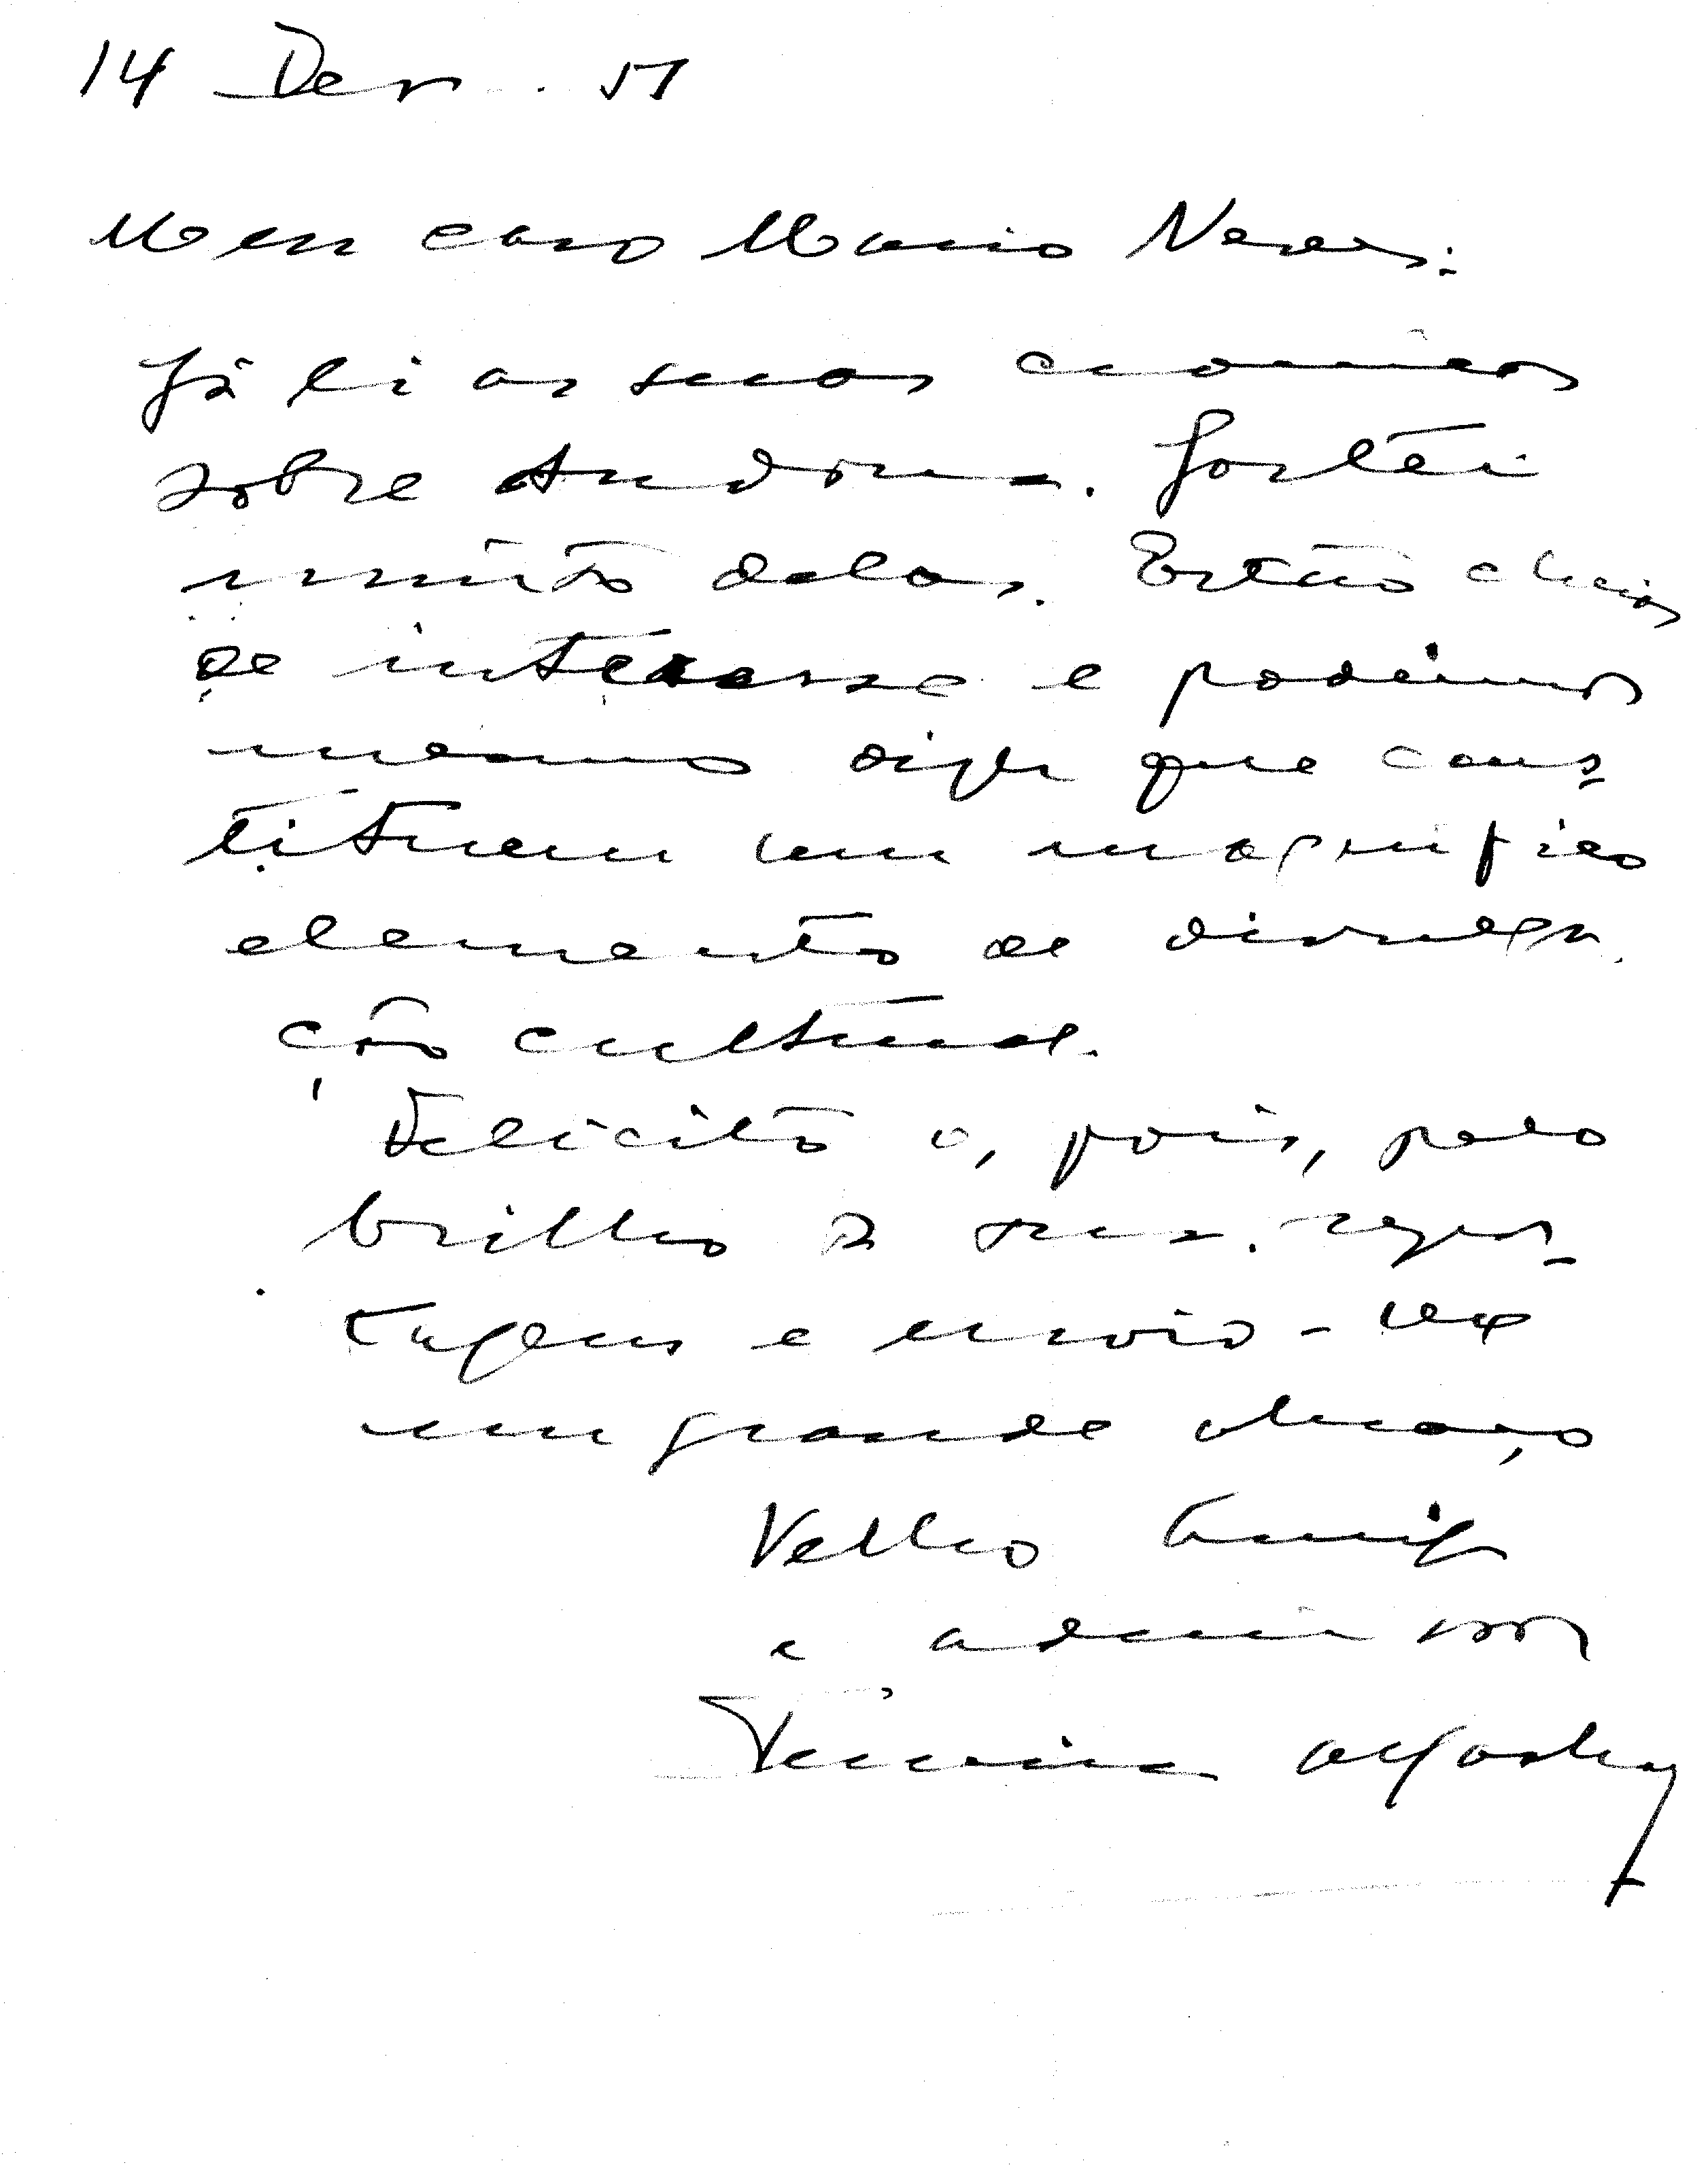 14 Dez. 51
Meu caro Mario Neves:
Já li as suas cronicas
sobre Andorra. Gostei
muito delas. Estão cheias
de interesse e podemos
mesmo dizer que cons-
tituem um magnifico
elemento de divulga-
ção cultural.
Felicito o, pois, pelo
brilho da sua repor-
tagem e envio-lhe
um grande abraço
Velho Amigo
e admirador